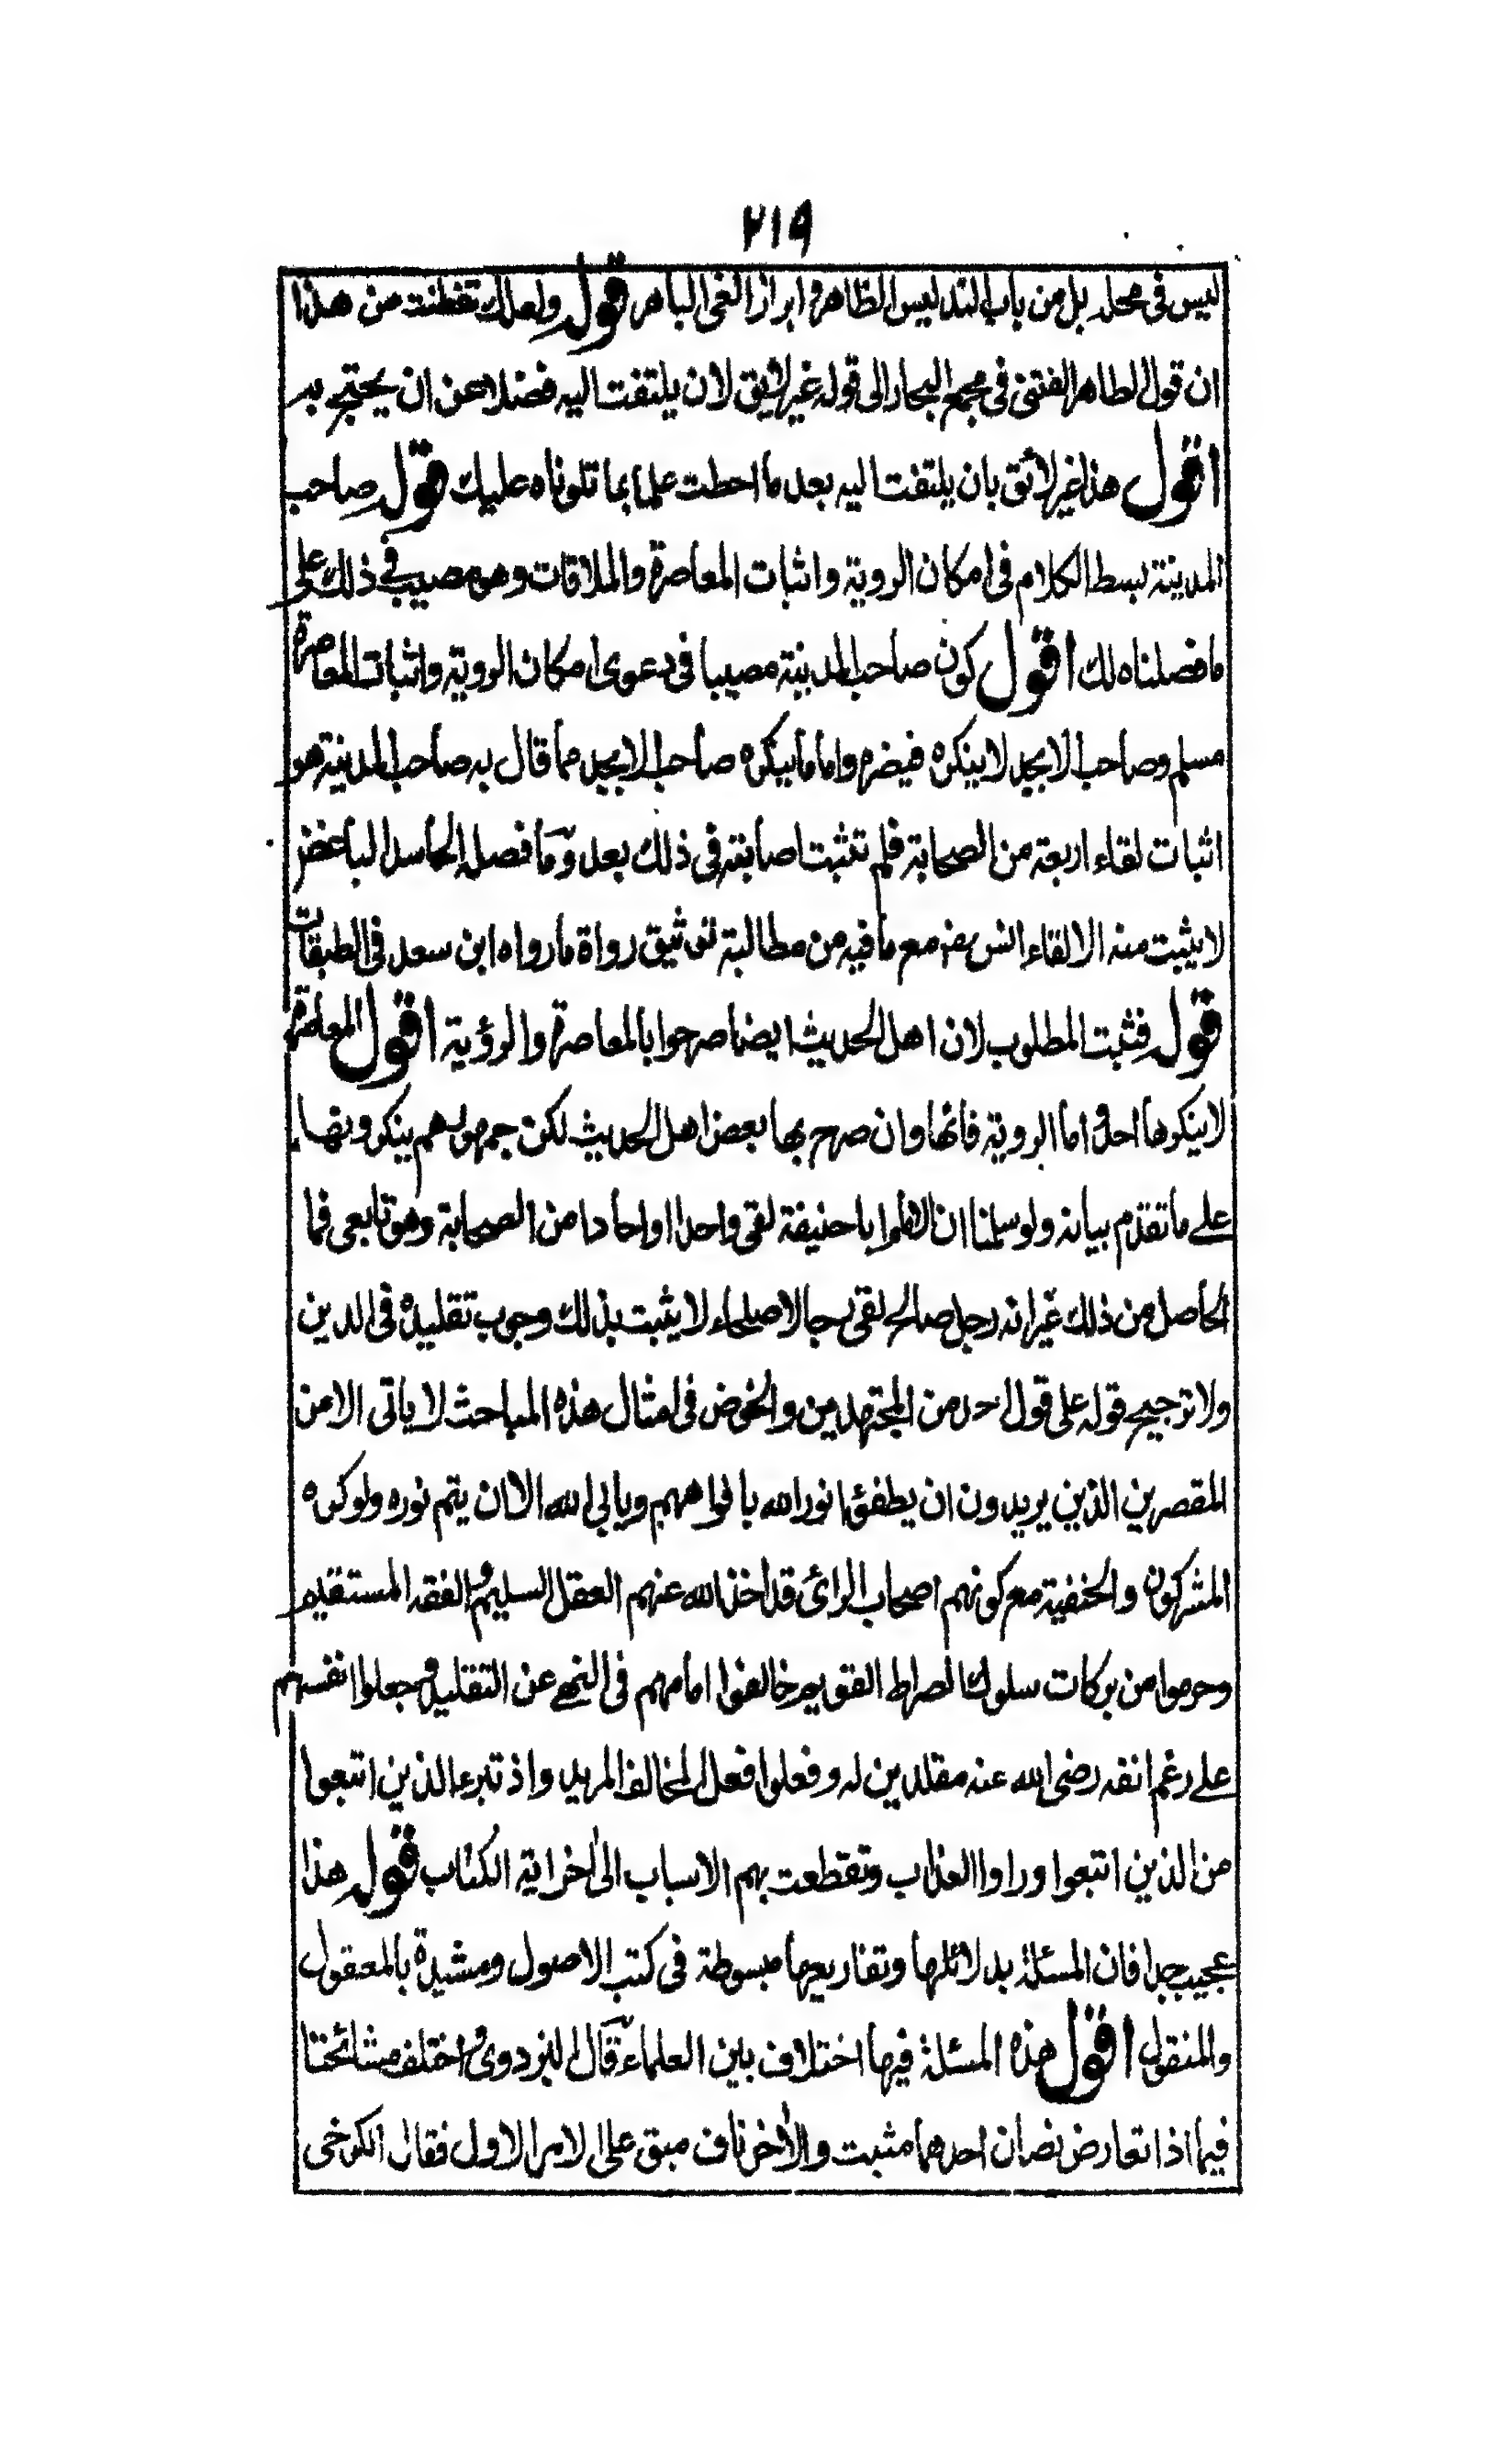 ٢١٩
ليس فى محله بل من باب التدليس الظاهر وابراز الغى الباهر قوله ولعلك تفطنت من هذا
ان قول الطاهر الفتنى فى مجمع البحار الى قوله غير لايق لان يلتفت اليه فضلا عن ان يحتج به
اقول هذا غير لائق بان يلتفت اليه بعد ما احطت علما بما تلوناه عليك قوله صاحب
المدينة بسط الكلام فى امكان الروية واثبات المعاصرة والملاقات وهو مصيب فى ذلك على
ما فصلناه لك اقول كون صاحب المدينة مصيبا فى دعوى امكان الروية واثبات المعاصرة
مسلم وصاحب الابجد لا ينكره فيضره واما ما ينكره صاحب الابجد مما قال به صاحب المدينة هو
اثبات لقاء اربعة من الصحابة فلم تثبت اصابته فى ذلك بعد وما فصله الحاسد الباغض
لا يثبت منه الا لقاء انس رضه مع ما فيه من مطالبة توثيق رواة ما رواه ابن سعد فى الطبقات
قوله فثبت المطلوب لان اهل الحديث ايضا صرحوا بالمعاصرة والرؤية اقول المعاصرة
لا ينكرها احد واما الروية فانها وان صرح بها بعض اهل الحديث لكن جمهورهم ينكرونها
على ما تقدم بيانه ولو سلمنا ان الامام ابا حنيفة لقى واحدا او احادا من الصحابة وهو تابعى فما
الحاصل من ذلك غير انه رجل صالح لقى رجالا صلحاء لا يثبت بذلك وجوب تقليده فى الدين
ولا ترجيح قوله على قول احد من المجتهدين والخوض فى امثال هذه المباحث لا ياتى الا من
المقصرين الذين يريدون ان يطفئوا نور الله بافواههم ويابى الله الا ان يتم نوره ولو كره
المشركون والحنفية مع كونهم اصحاب الرائ قد اخذ الله عنهم العقل السليم والفقه المستقيم
وحرموا من بركات سلوك الصراط القويم خالفوا امامهم فى النهى عن التقليد وجعلوا انفسهم
على رغم انفه رضى الله عنه مقلدين له وفعلوا فعل المخالف المريد واذ تبرء الذين اتبعوا
من الذين اتبعوا وراوا العذاب وتقطعت بهم الاسباب الى اخر اية الكتاب قوله هذا
عجيب جدا فان المسئلة بدلائلها وتفاريعها مبسوطة فى كتب الاصول ومشيدة بالمعقول
والمنقول اقول هذه المسئلة فيها اختلاف بين العلماء قال البزدوى واختلف مشائخنا
فيما اذا تعارض نصان احدهما مثبت والأخر ناف مبق على الامر الاول فقال الكرخى